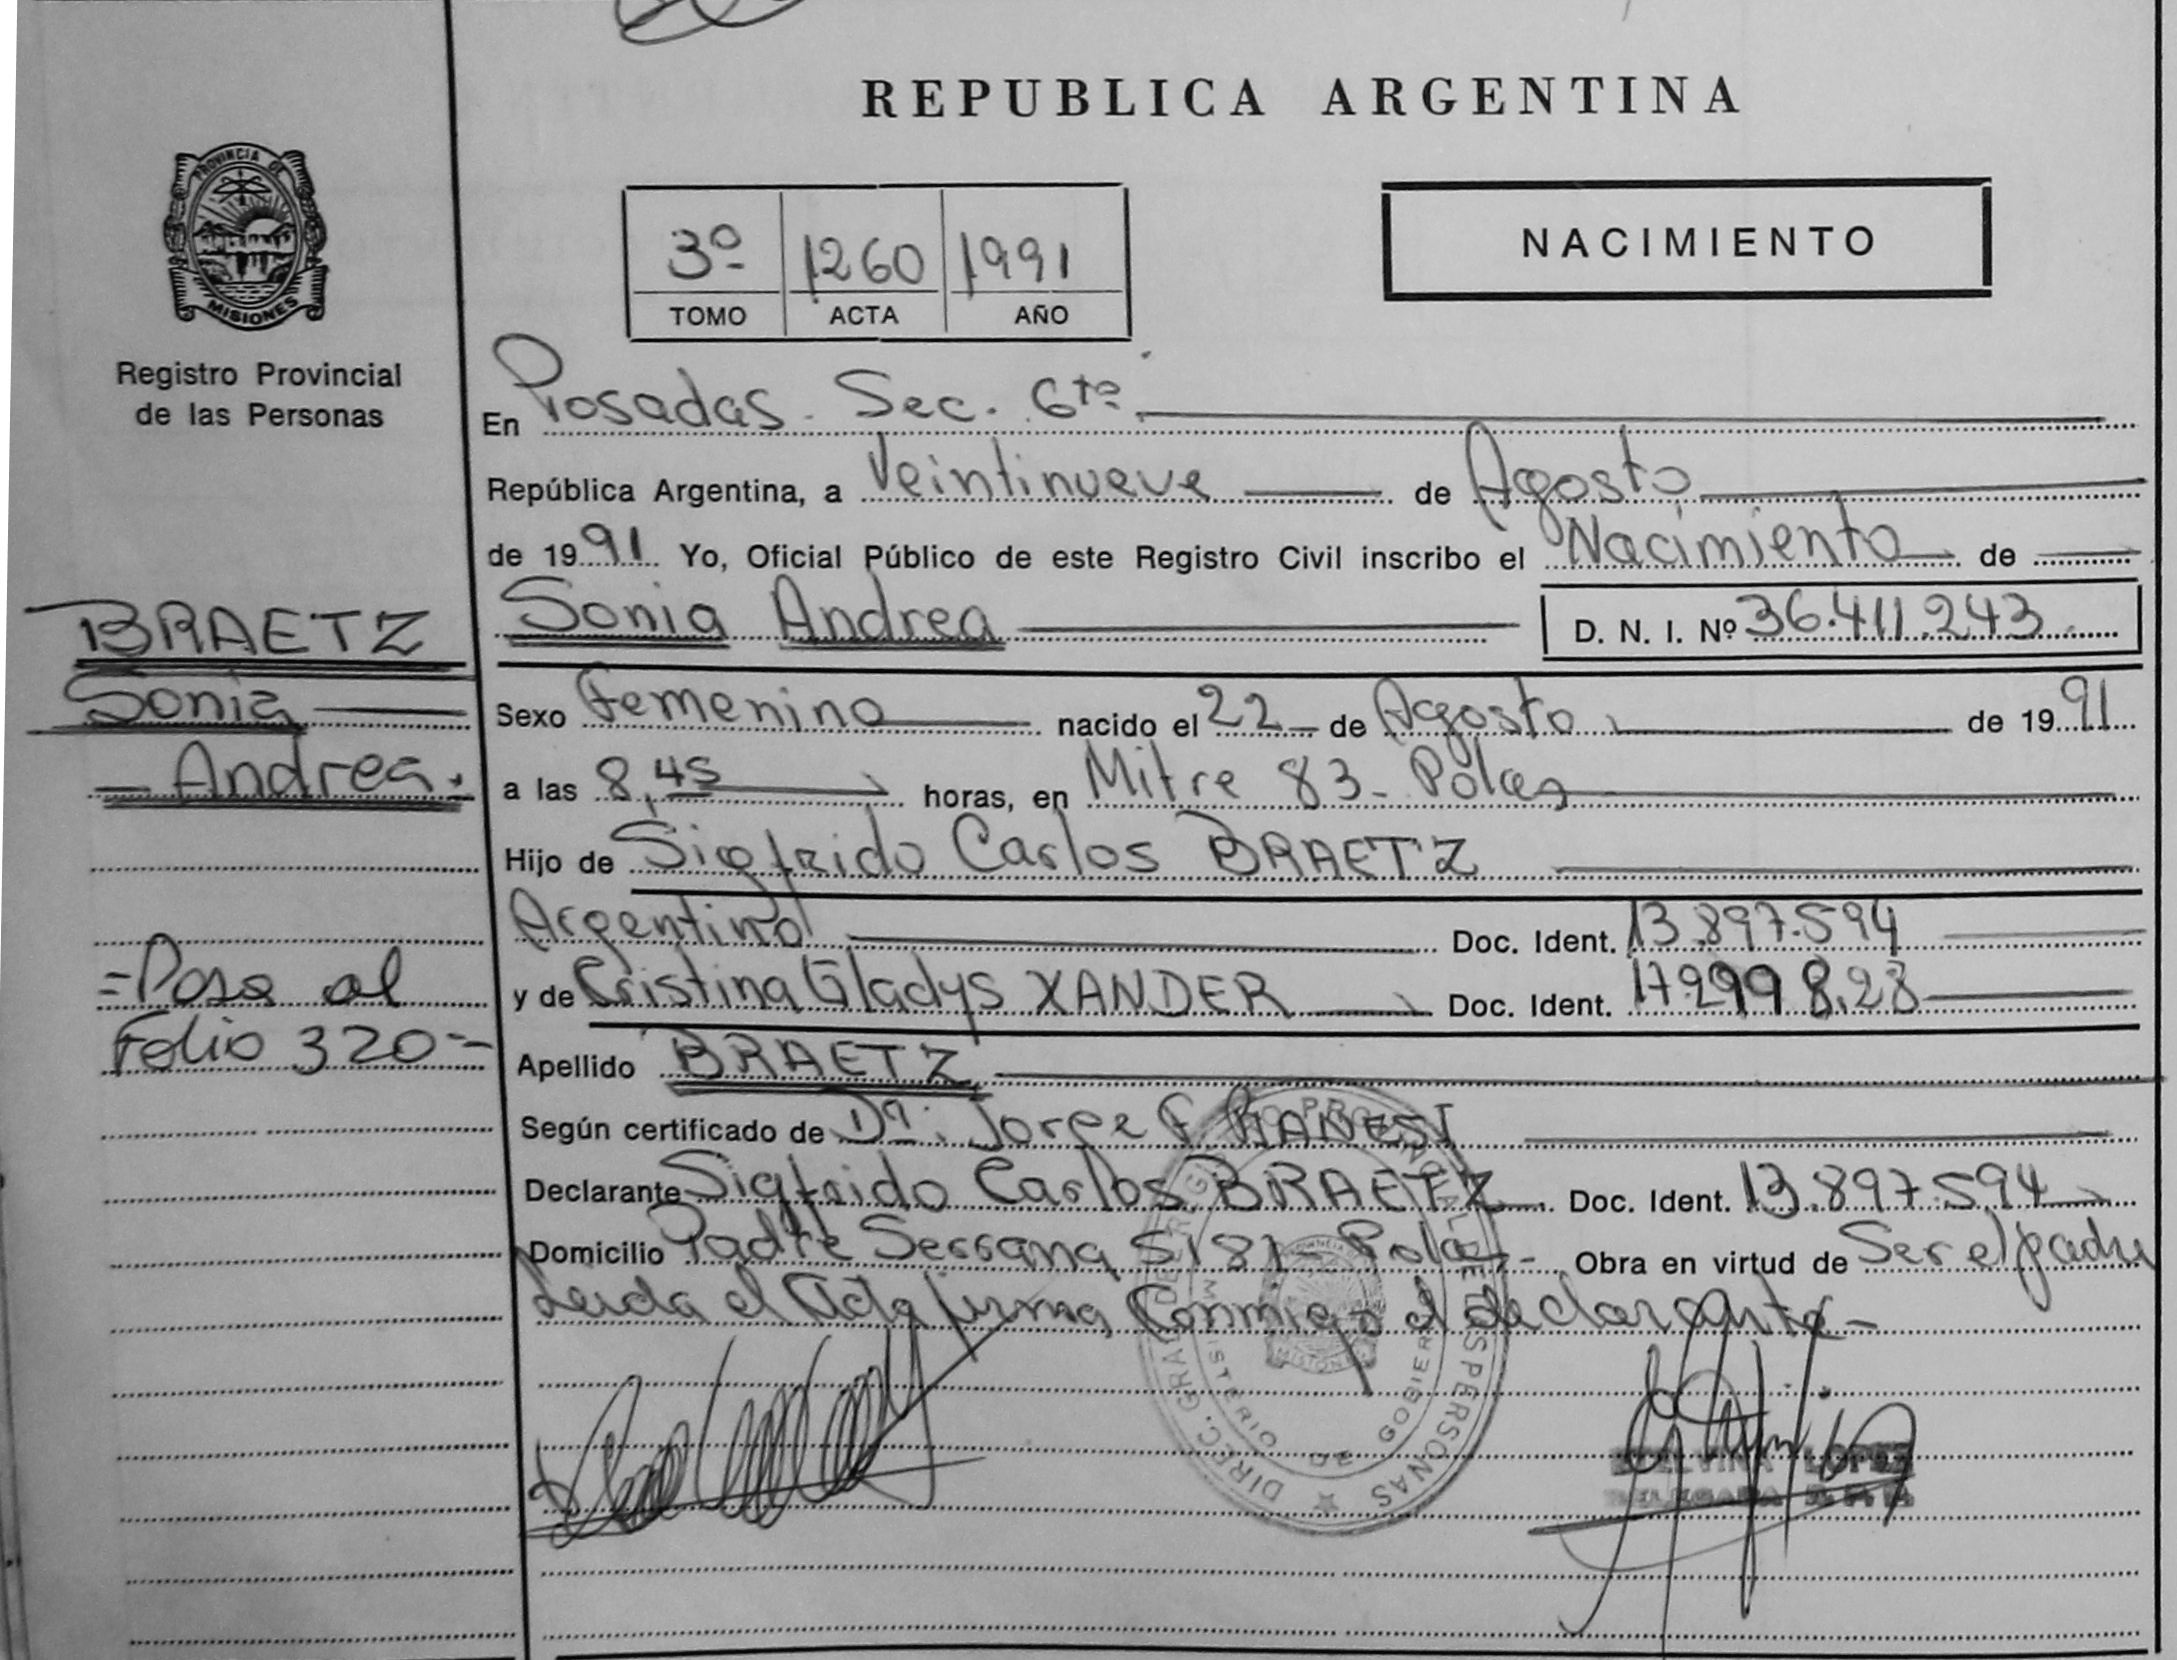 REPUBLICA ARGENTINA
PROVINCIA DE
MISIONES
Registro Provincial
de las Personas
3º 1260 1991
TOMO ACTA AÑO
NACIMIENTO
En Posadas - Sec. 6ta.
República Argentina, a Veintinueve de Agosto
de 1991 Yo, Oficial Público de este Registro Civil inscribo el Nacimiento de
Sonia Andrea D. N. I. Nº 36.411.243
BRAETZ
Sonia
Andrea.
Sexo Femenino nacido el 22 de Agosto de 1991
a las 8,45 horas, en Mitre 83 - Pdas
Hijo de Sigfrido Carlos BRAETZ
Argentino Doc. Ident. 13.897.594
y de Cristina Gladys XANDER Doc. Ident. 17.299 8,28
=Pasa al
Folio 320=
Apellido BRAETZ
Según certificado de Dr. Jorge F.
Declarante Sigfrido Carlos BRAETZ Doc. Ident. 13.897.594
Domicilio Padre Serrana 5181 - Pdas - Obra en virtud de Ser el padre
Leida el Acta firma Conmigo el declarante -
DIREC. GRAL. DE REGISTRO PROVINCIAL DE LAS PERSONAS
MINISTERIO DE GOBIERNO
MISIONES
LOPEZ
DELEGADA R.P.P.